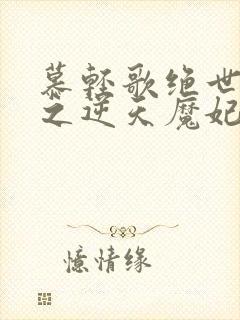 慕轻歌绝世
之逆天魔妃
憶情缘